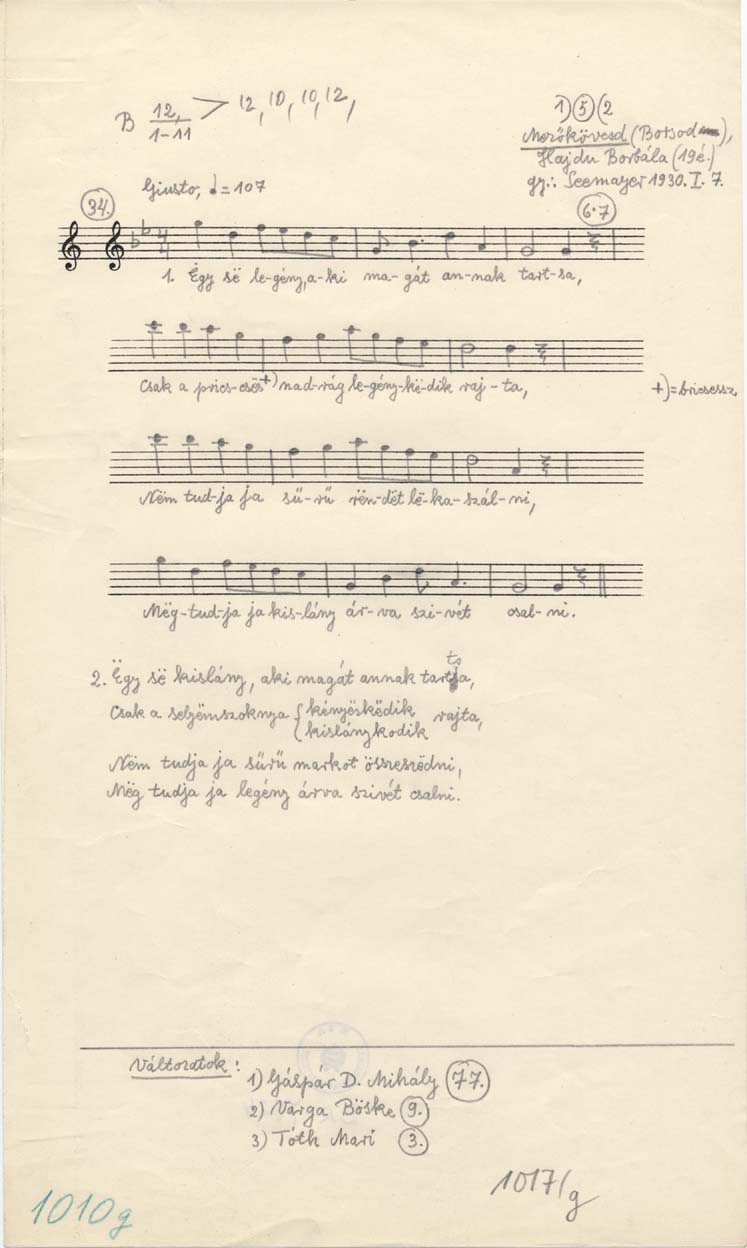 B 12, / 1-11 > 12, 10, 10, 12,
1) 5 (2
Mezőkövesd (Borsod),
Hajdu Borbála (19é.)
gy.: Seemayer 1930. I. 7.
Giusto, ♩= 107
34.
6·7
1. Ëgy së le-gény, a-ki ma-gát an-nak tart-sa,
Csak a prics-csës +) nad-rág le-gény-kë-dik raj-ta,
+) = bricsessz
Nëm tud-ja ja sű-rű rën-dët lë-ka-szál-ni,
Mëg-tud-ja ja kis-lány ár-va szi-vét csal-ni.
2. Ëgy së kislány, aki magát annak tartsa,
Csak a selyëmszoknya { kényëskëdik rajta,
kislánykodik
Nëm tudja ja sűrű markot összeszëdni,
Mëg tudja ja legény árva szivét csalni.
Változatok:
1) Gáspár D. Mihály 77.
2) Varga Böske 9.
3) Tóth Mari 3.
1017/g
1010g